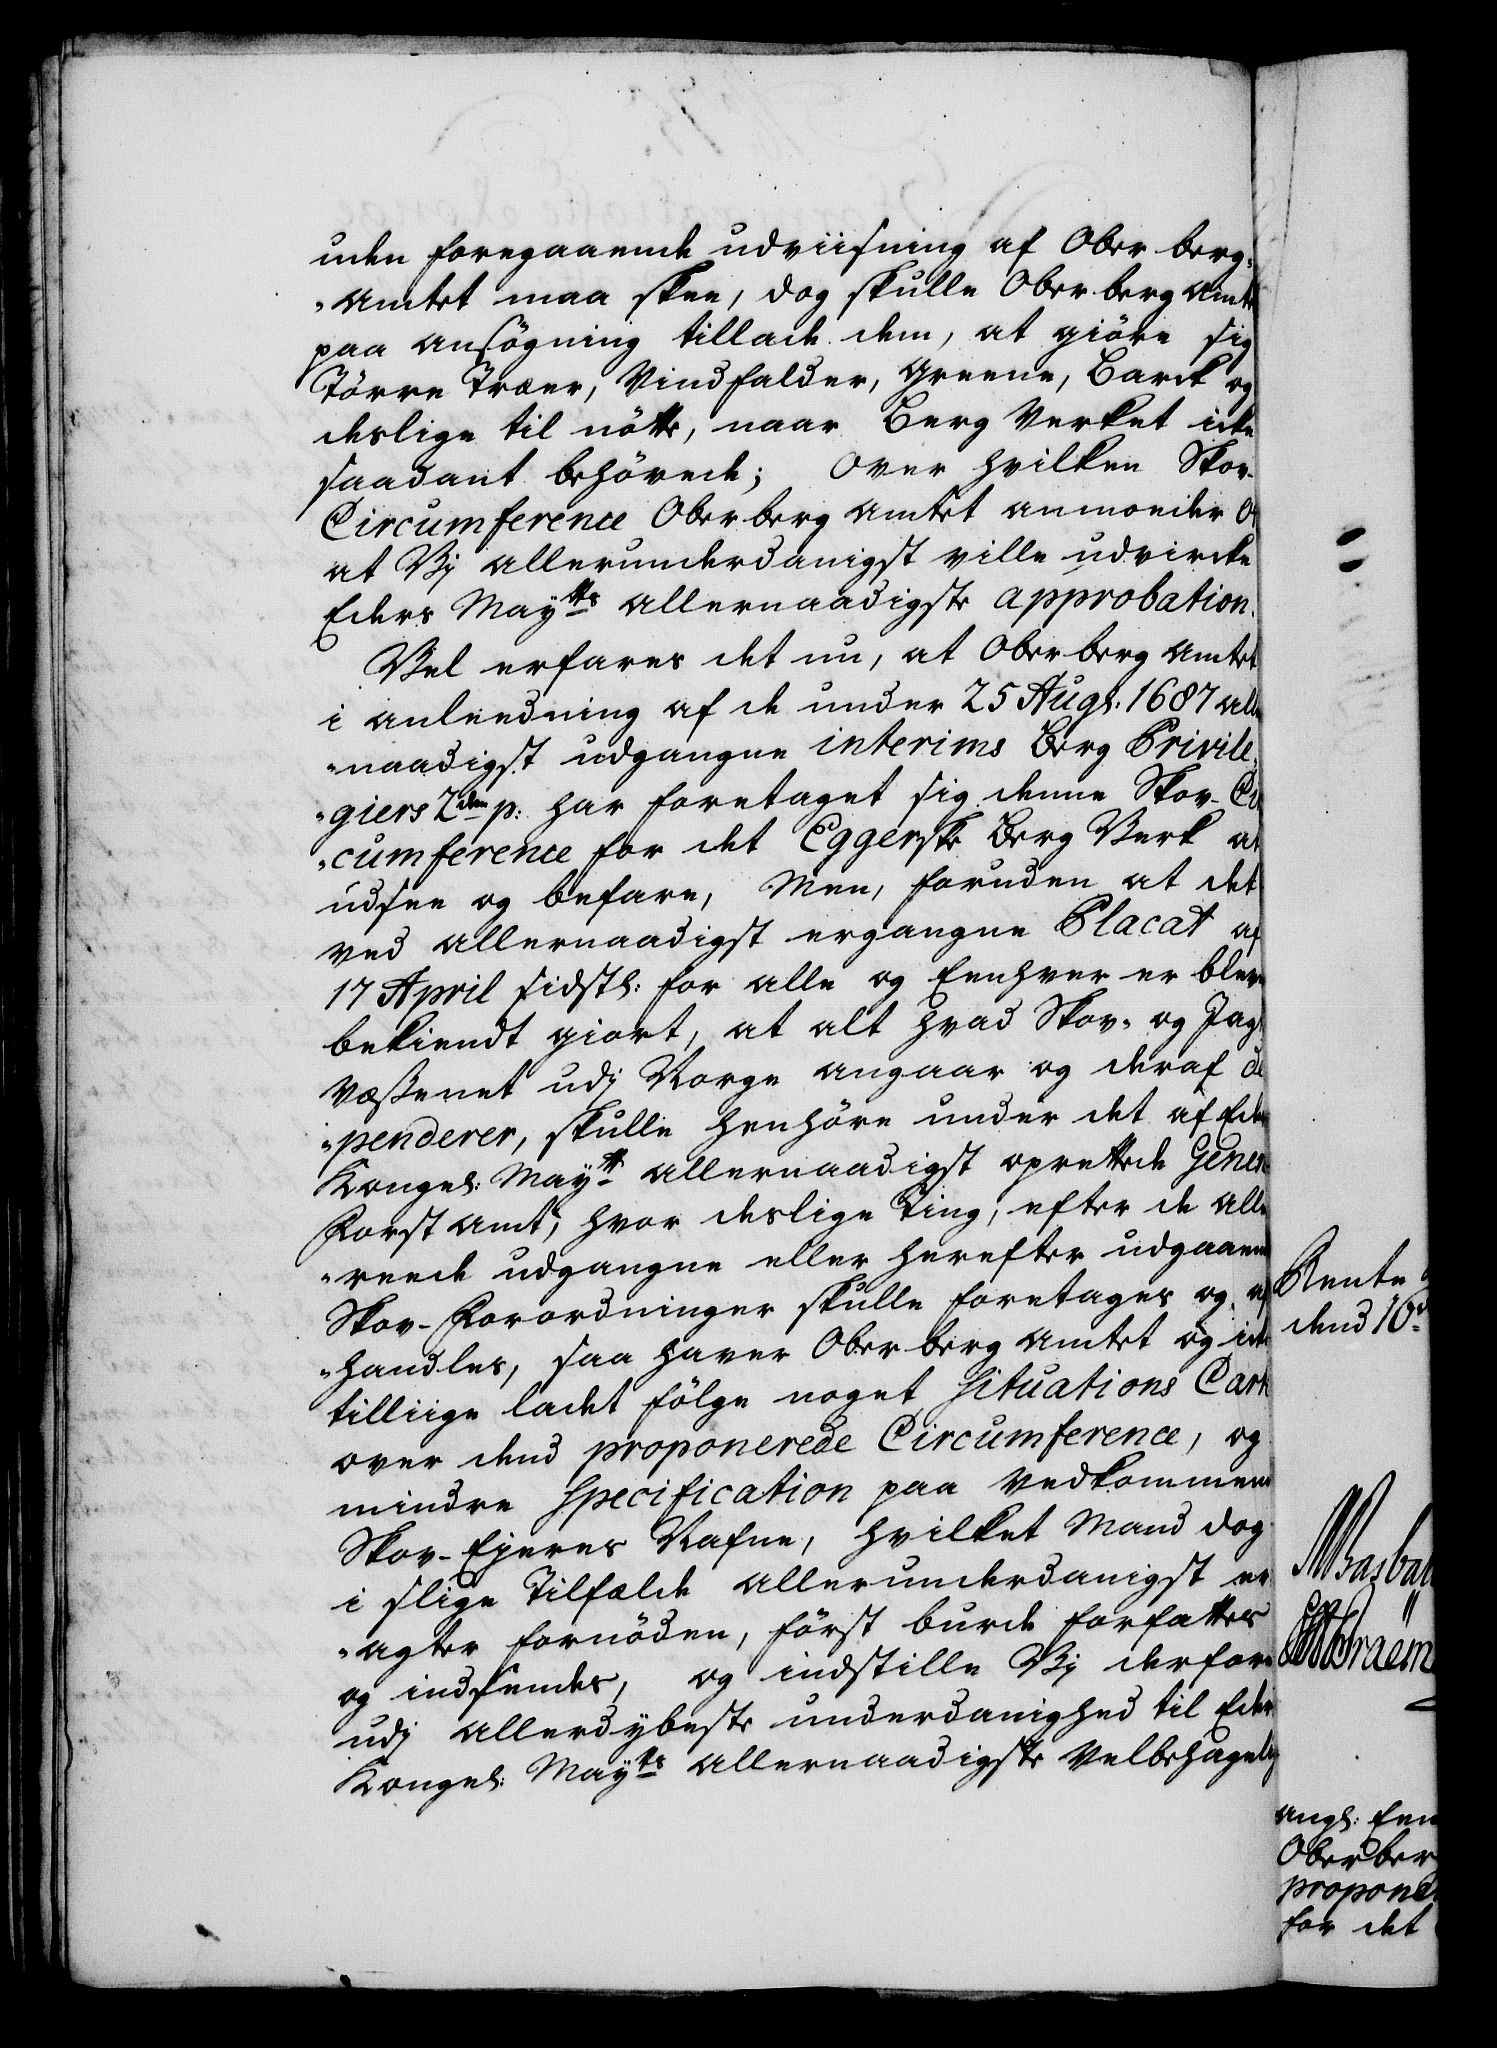 uden foregaaende udviisning af Ober berg-
-Amtet maa skee, dog skulle Ober berg Amtet
paa ansøgning tillade dem, at giöre sig
Törre Træer, Vindfalder, Greene, Barck og
deslige til nötte, naar Berg Verket icke
saadant behövede; Over hvilken Skov-
Circumference Ober berg Amtet anmoeder
at Vj allerunderdanigst ville udvircke
Eders Maytts allernaadigste approbation.
Vel erfares det nu, at Ober berg Amtet
i anleedning af de under 25 Augs: 1687 aller
-naadigst udgangne interims Berg Privile-
-giers 2den p: har foretaget sig denne Skov-Cir
-cumference for det Eggerske Berg Verk at
udsee og befare, Men, foruden at det
ved allernaadigst ergangne Placat af
17 April sidstl: for alle og Eenhver er bleven
bekiendt giort, at alt hvad Skov- og Jagt
Væßenet udj Norge angaar og deraf de
-penderer, skulle henhöre under det af Eders
Kongel: Maytt allernaadigst oprettede General
Forst Amt, hvor deslige Ting, efter de alle
-reede udgangne eller herefter udgaaende
Skov-Forordninger skulle foretages og af
-handles, saa haver Ober berg Amtet og icke
tilliige ladet fölge noget Situations Cart
over dend proponerede Circumference, og
mindre Specification paa Vedkommende
Skov-Ejeres Nafne, hvilket Mand dog
i slige Tilfælde allerunderdanigst er
-agter fornöden, först burde forfattes
og indsendes, og indstille Vj derfore
udj allerdybeste underdanighed til Eders
Kongel: Maytts allernaadigste Velbehagelig
Rente
dend 10
angl: Een
Oberberg
propone
for det